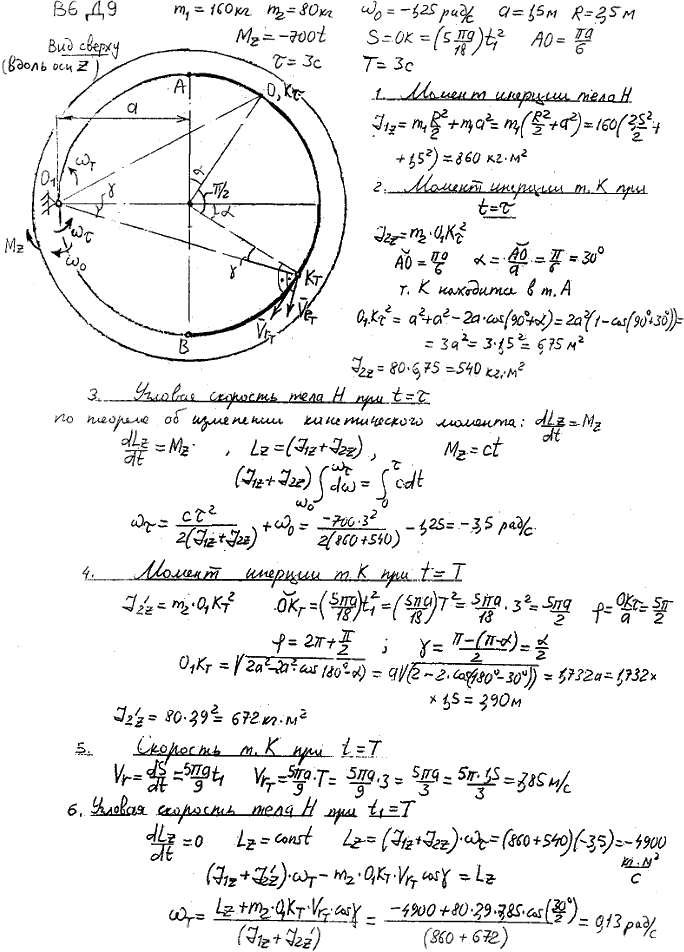 В6 Д9 m₁ = 160кг m₂ = 80кг ω₀ = -1,25 рад/с a = 1,5м R = 2,5м
M_z = -700t S = OK = (5πa/18)t₁² AO = πa/6
Вид сверху
(вдоль оси Z)
τ = 3с T = 3с
A
O, Kτ
a
α
O₁
ω_T
γ
π/2
α
ωτ
ω₀
M_z
γ
K_T
V̄r_T
V̄e_T
B
1. Момент инерции тела Н
J₁z = m₁R²/2 + m₁a² = m₁(R²/2 + a²) = 160(2,5²/2 +
+ 1,5²) = 860 кг·м²
2. Момент инерции т. К при
t = τ
J₂z = m₂·O₁Kτ²
AO = πa/6 α = AO/a = π/6 = 30°
т. К находится в т. А
O₁Kτ² = a² + a² - 2a·cos(90°+α) = 2a²(1 - cos(90°+30°)) =
= 3a² = 3·1,5² = 6,75 м²
J₂z = 80·6,75 = 540 кг·м²
3. Угловая скорость тела Н при t = τ
по теореме об изменении кинетического момента: dLz/dt = Mz
dLz/dt = Mz, Lz = (J₁z + J₂z), Mz = ct
(J₁z + J₂z) ∫_ω₀^ωτ dω = ∫_0^τ cdt
ωτ = cτ²/2(J₁z + J₂z) + ω₀ = -700·3²/2(860+540) - 1,25 = -3,5 рад/с
4. Момент инерции т. К при t = T
J₂'z = m₂·O₁K_T² OK_T = (5πa/18)t₁² = (5πa/18)T² = 5πa/18·3² = 5πa/2 φ = OKτ/a = 5π/2
φ = 2π + π/2 ; γ = π-(π-α)/2 = α/2
O₁K_T = √(2a² - 2a²·cos 180° - α) = a√(2 - 2·cos(180° - 30°)) = 1,732a = 1,732×
× 1,5 = 2,90м
J₂'z = 80·2,9² = 672 кг·м²
5. Скорость т. К при t = T
Vr = dS/dt = 5πa/9 t₁ Vr_T = 5πa/9·T = 5πa/9·3 = 5πa/3 = 5π·1,5/3 = 7,85 м/с
6. Угловая скорость тела Н при t₁ = T
dLz/dt = 0 Lz = const Lz = (J₁z + J₂z)·ωτ = (860+540)(-3,5) = -4900 кг·м²/с
(J₁z + J₂'z)·ω_T - m₂·O₁K_T·Vr_T cosγ = Lz
ω_T = Lz + m₂·O₁K_T·Vr_T·cosγ/(J₁z + J₂z') = -4900 + 80·2,9·7,85·cos(30°/2)/(860 + 672) = 0,13 рад/с